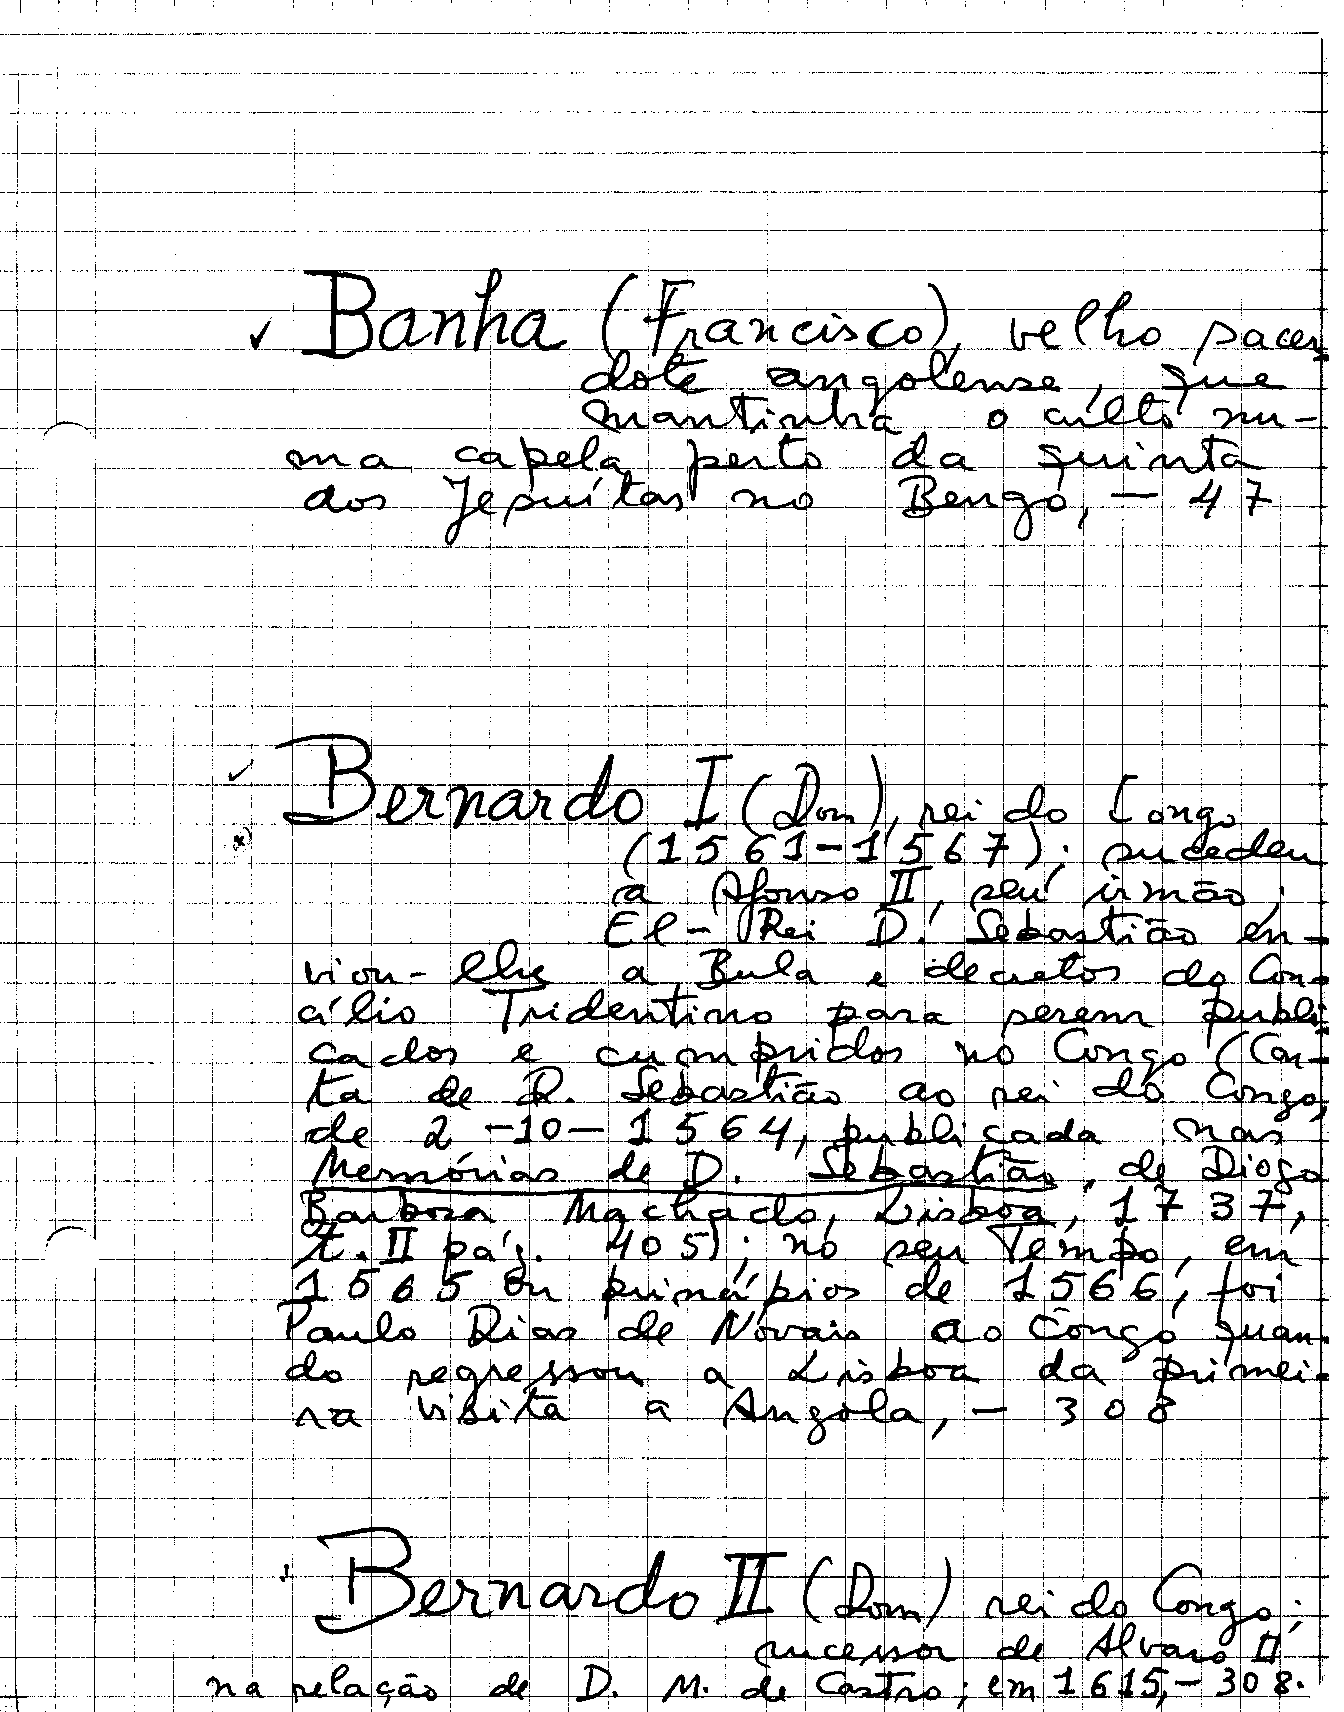 ✓ Banha (Francisco), velho sacer-
dote angolense, que
mantinha o culto nu-
ma capela perto da quinta
dos Jesuítas no Bengo, – 47
✓ Bernardo I (Dom), rei do Congo
(x) (1561–1567); sucedeu
a Afonso II, seu irmão;
El-Rei D. Sebastião en-
viou-lhe a Bula e decretos do Con-
cílio Tridentino para serem publi-
cados e cumpridos no Congo (Car-
ta de D. Sebastião ao rei do Congo,
de 2-10-1564, publicada nas
Memórias de D. Sebastião, de Diogo
Barbosa Machado, Lisboa, 1737,
t. II pág. 405); no seu Tempo, em
1565 ou princípios de 1566, foi
Paulo Dias de Novais ao Congo quan-
do regressou a Lisboa da primei-
ra visita a Angola, – 308
Bernardo II (Dom) rei do Congo;
sucessor de Alvaro II
na relação de D. M. de Castro; em 1615, – 308.